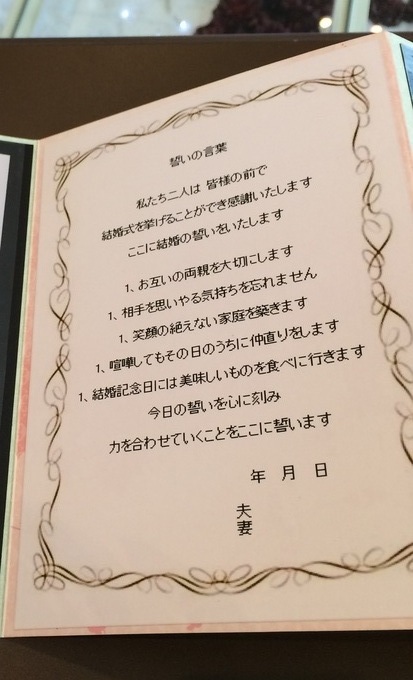 誓いの言葉
私たち二人は 皆様の前で
結婚式を挙げることができ感謝いたします
ここに結婚の誓いをいたします
1、お互いの両親を大切にします
1、相手を思いやる気持ちを忘れません
1、笑顔の絶えない家庭を築きます
1、喧嘩してもその日のうちに仲直りをします
1、結婚記念日には美味しいものを食べに行きます
今日の誓いを心に刻み
力を合わせていくことをここに誓います
年 月 日
夫
妻